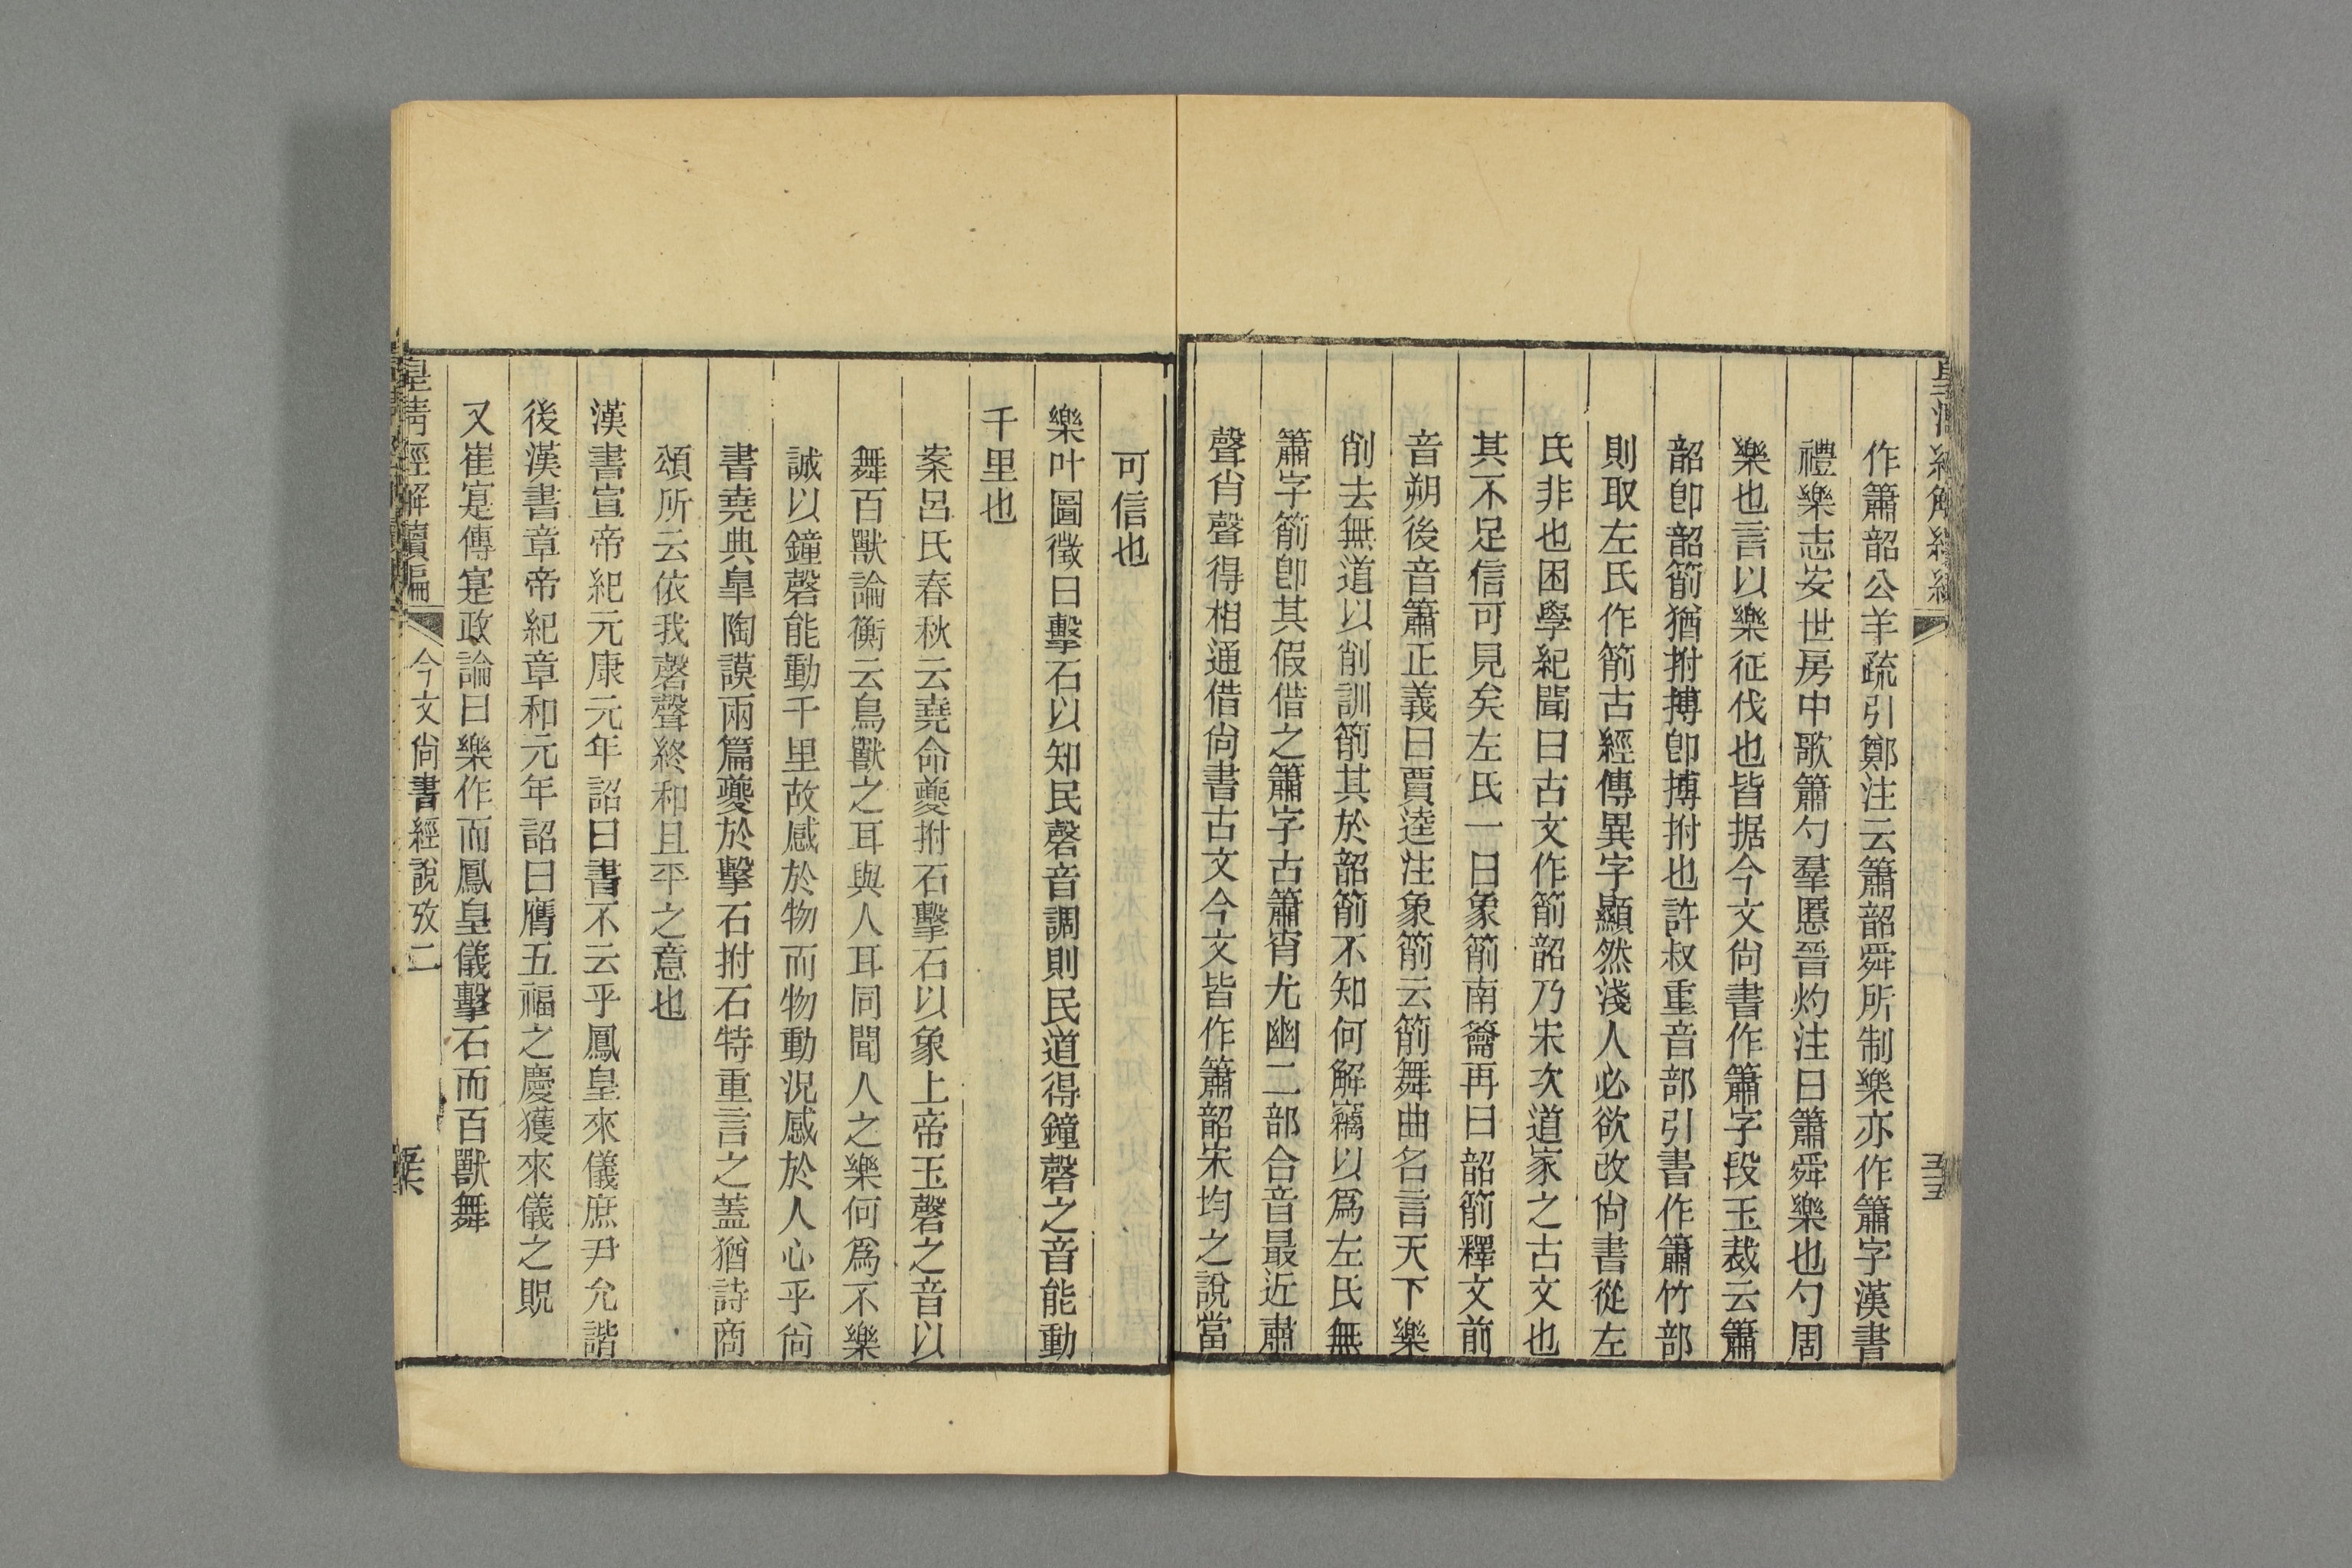 作簫韶公羊疏引鄭注云簫韶舜所制樂亦作簫字漢書
禮樂志安世房中歌簫勺羣慝晉灼注曰簫舜樂也勺周
樂也言以樂征伐也皆据今文尙書作簫字段玉裁云簫
韶卽韶箾猶拊搏卽搏拊也許叔重音部引書作簫竹部
則取左氏作箾古經傳異字顯然淺人必欲改尙書從左
氏非也困學紀聞曰古文作箾韶乃宋次道家之古文也
其不足信可見矣左氏一曰象箾南籥再曰韶箾釋文前
音朔後音簫正義曰賈逵注象箾云箾舞曲名言天下樂
削去無道以削訓箾其於韶箾不知何解竊以爲左氏無
簫字箾卽其假借之簫字古簫宵尤幽二部合音最近肅
聲肖聲得相通借尙書古文今文皆作簫韶宋均之說當
可信也
樂叶圖徵曰擊石以知民磬音調則民道得鐘磬之音能動
千里也
案呂氏春秋云堯命夔拊石擊石以象上帝玉磬之音以
舞百獸論衡云鳥獸之耳與人耳同聞人之樂何爲不樂
誠以鐘磬能動千里故感於物而物動況感於人心乎尙
書堯典皐陶謨兩篇夔於擊石拊石特重言之蓋猶詩商
頌所云依我磬聲終和且平之意也
漢書宣帝紀元康元年詔曰書不云乎鳳皇來儀庶尹允諧
後漢書章帝紀章和元年詔曰膺五福之慶獲來儀之貺
又崔寔傳寔政論曰樂作而鳳皇儀擊石而百獸舞
皇淸經解續編 今文尙書經說攷二